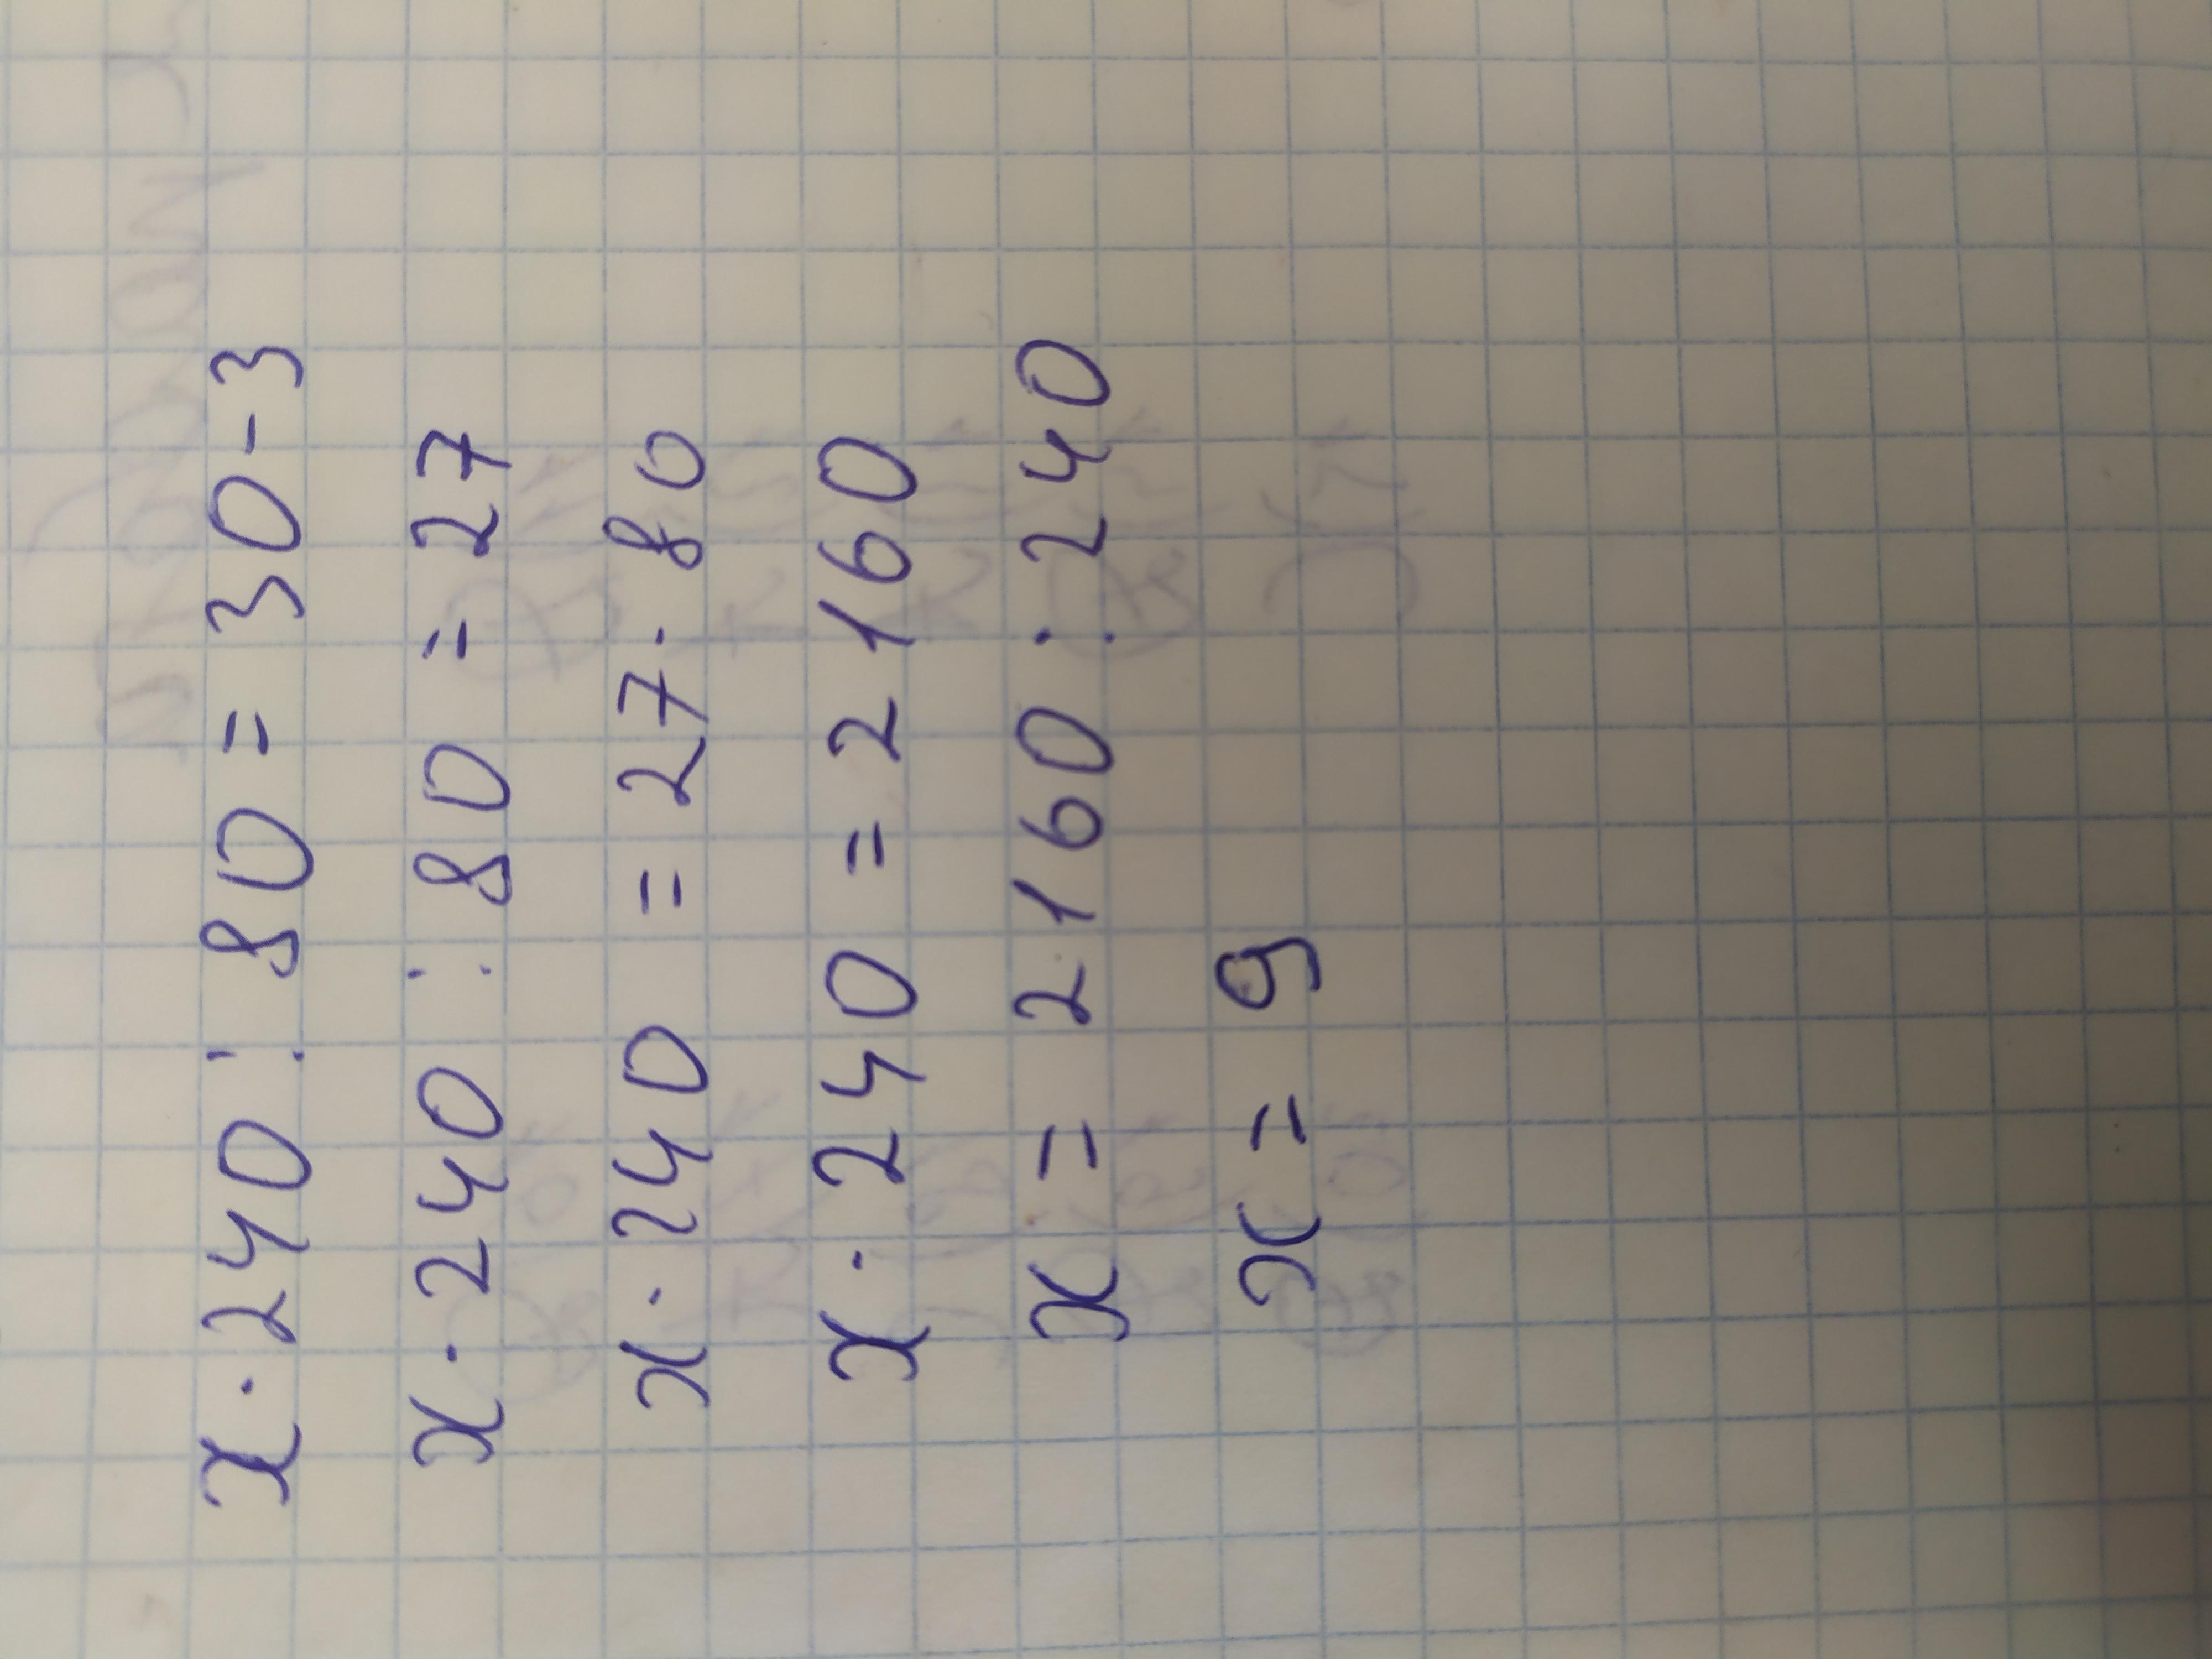 x · 240 : 80 = 30 - 3
x · 240 : 80 = 27
x · 240 = 27 · 80
x · 240 = 2160
x = 2160 : 240
x = 9